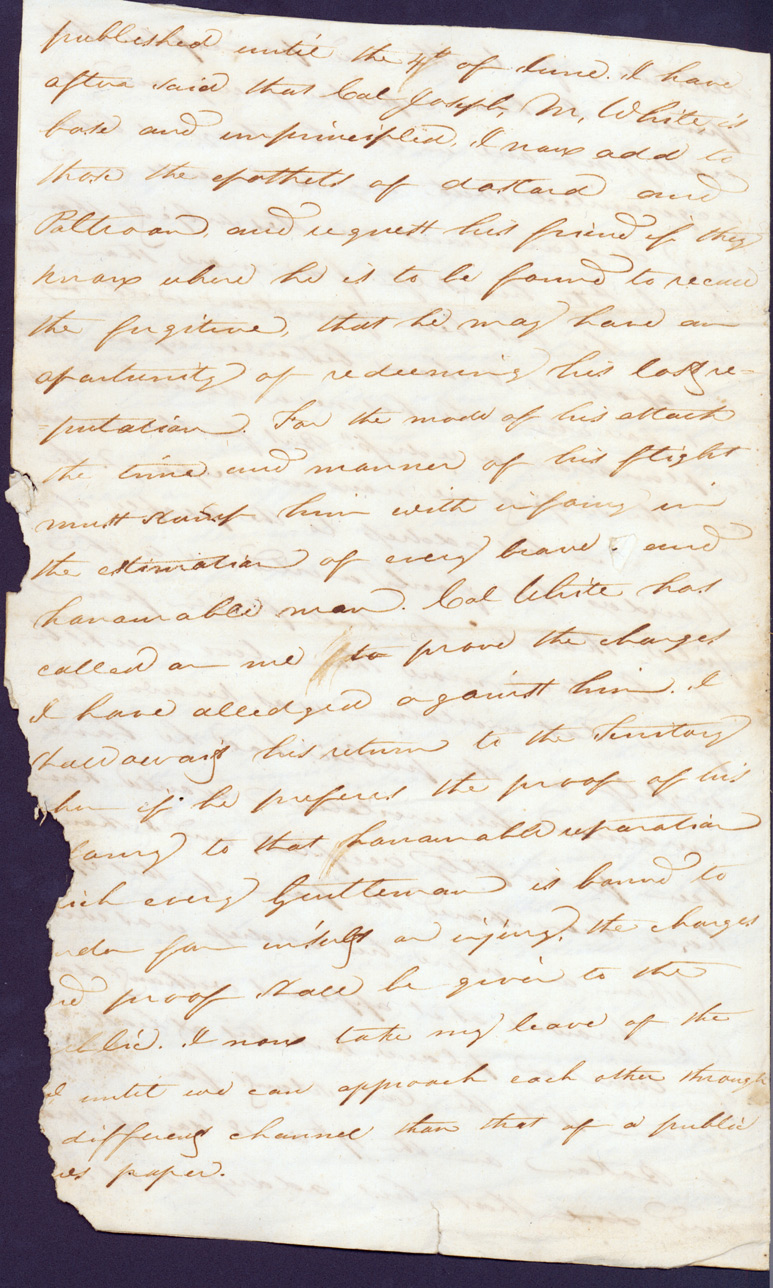 published until the 4th of June. I have
often said that Col Joseph, M, White, is
base and unprincipled, I now add to
those the epothets of dastard and
Paltroon, and request his friend if they
know where he is to be found to recall
the fugitive, that he may have an
oportunity of redeeming his lost re-
-putation. For the mode of his attack
the time and manner of his flight
must stamp him with infamy in
the estimation of every brave and
honourable man. Col White has
called on me to prove the charges
I have alledged against him. I
shall await his return to the Territory
when if he preferes the proof of his
famy to that honourable reparation
ich every Gentleman is bound to
nder for insult or injury, the charges
nd proof shall be given to the
ublic. I now take my leave of the
l until we can approach each other through
different channel than that of a public
ws paper.